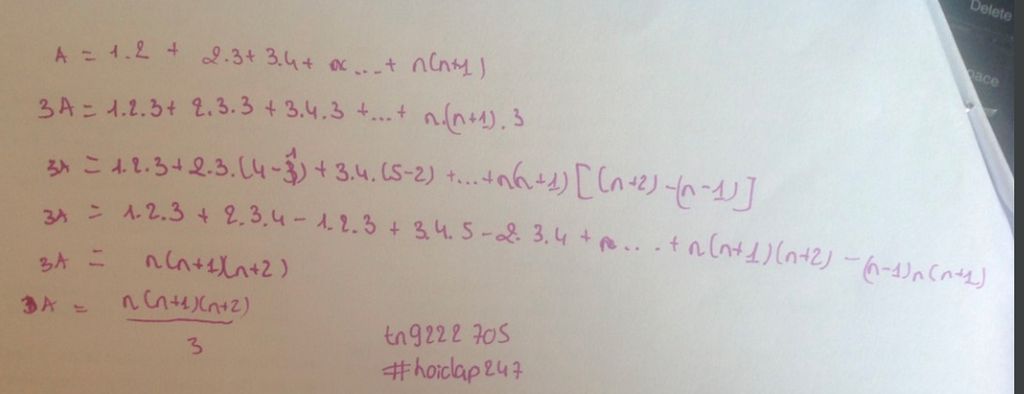 Delete
pace
A = 1.2 + 2.3 + 3.4 + ... + n(n+1)
3A = 1.2.3 + 2.3.3 + 3.4.3 + ... + n.(n+1).3
3A = 1.2.3 + 2.3.(4-1) + 3.4.(5-2) + ... + n(n+1)[(n+2)-(n-1)]
3A = 1.2.3 + 2.3.4 - 1.2.3 + 3.4.5 - 2.3.4 + ... + n(n+1)(n+2) - (n-1)n(n+1)
3A = n(n+1)(n+2)
3A = n(n+1)(n+2)
3
tn9222705
#hoidap247